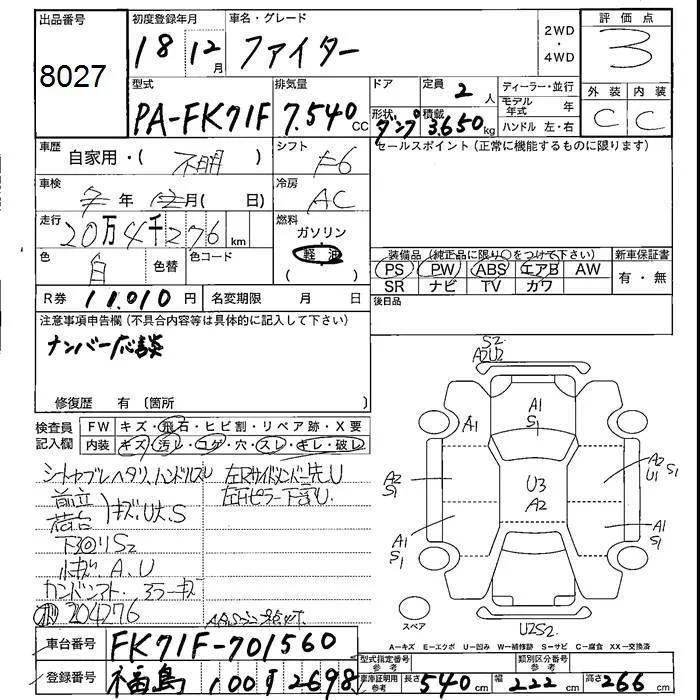 出品番号 初度登録年月 車名・グレード 2WD ・ 4WD 評価点
8027 18 12月 ファイター 3
型式 排気量 ドア 定員 2人 ディーラー・並行 外装 内装
PA-FK71F 7.540cc 形状 ダンプ 積載 3.650kg モデル年式 年 C C
ハンドル 左・右
車歴 自家用・( 不明 ) シフト F6 セールスポイント(正常に機能するものに限ります)
車検 年 月( 日) 冷房 AC
走行 20万4千276km 燃料 ガソリン
軽油
色 白 色替 色コード ( )
装備品(純正品に限り○をつけて下さい) 新車保証書
PS PW ABS エアB AW 有・無
SR ナビ TV カワ
R券 11.010円 名変期限 月 日 後日品
注意事項申告欄(不具合内容等は具体的に記入して下さい)
ナンバー応談
修復歴 有(箇所
検査員記入欄 FW キズ・飛石・ヒビ割・リペア跡・X要
内装 キズ・汚レ・コゲ・穴・スレ・キレ・破レ
左Rサイドメンバー先U
左Fピラー下部U
前立
荷台 キズU大.S
下回りS2
小キズA.U
204276
S2
A2U2
A1
S1
A1
A2
S1
U3
A2
A2
U1 S1
A1
S1
A1
S1
スペア
U2S2
A-キズ E-エクボ U-凹み W-補修跡 S-サビ C-腐食 XX-交換済
車台番号 FK71F-701560
型式指定番号 参考 類別区分番号 参考
登録番号 福島 100す2698
車庫証明用 参考 長さ 540cm 幅 222cm 高さ 266cm